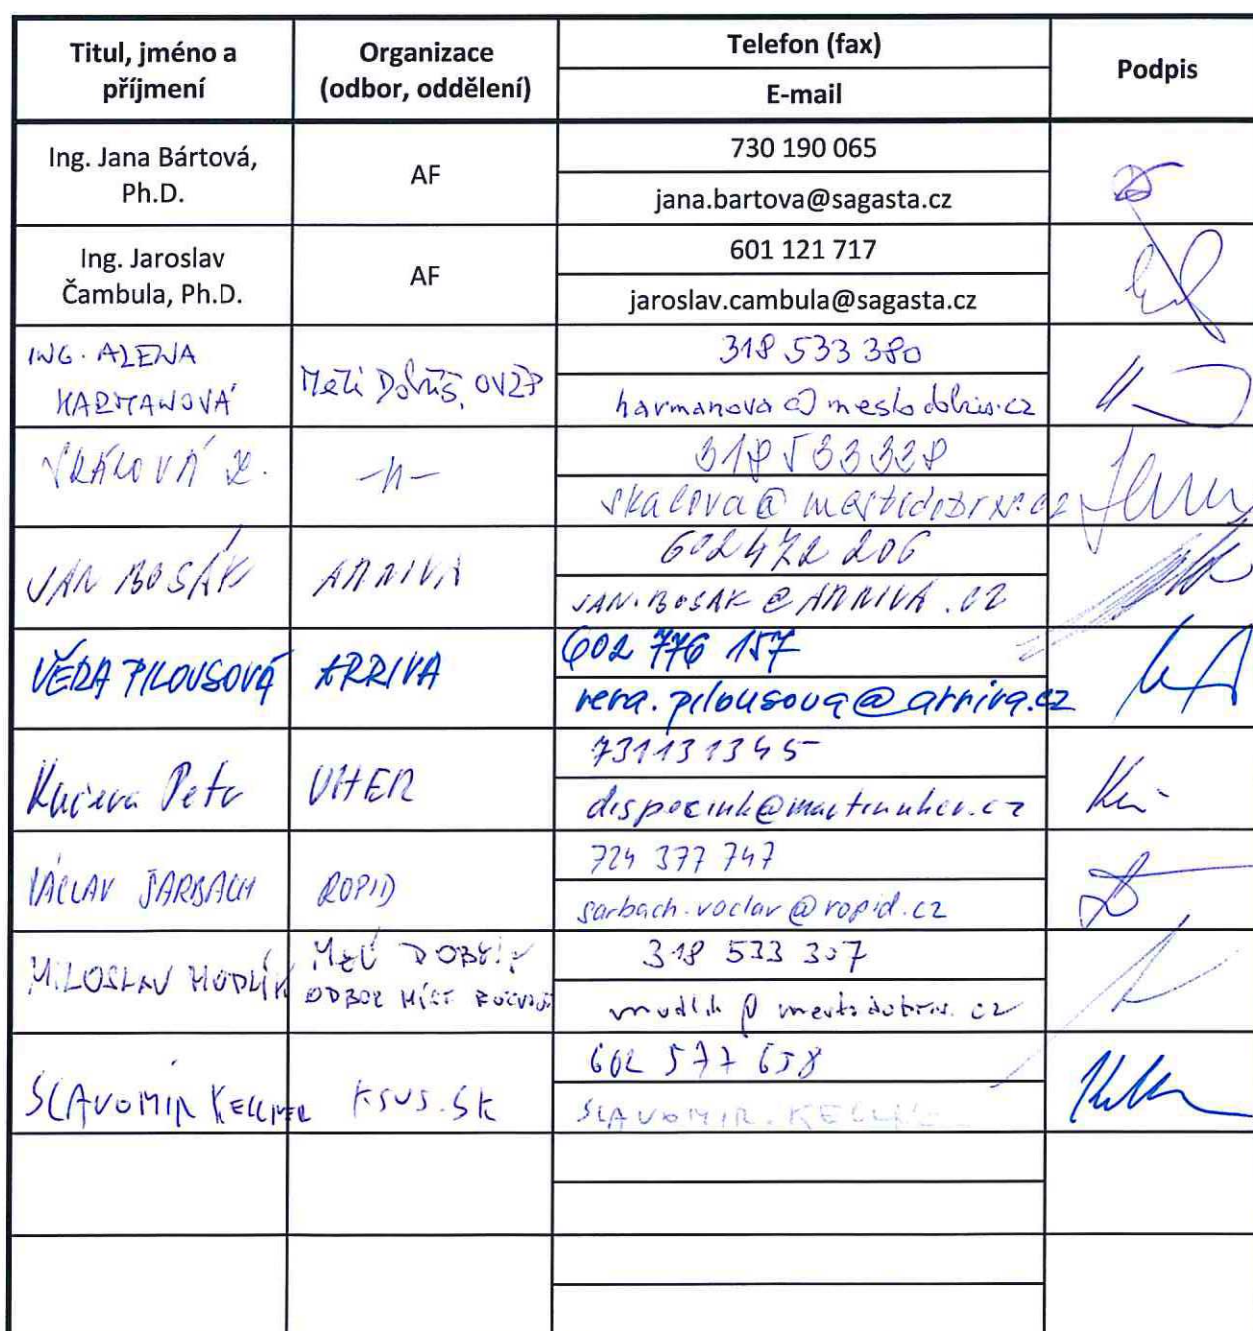 Titul, jméno a
příjmení
Organizace
(odbor, oddělení)
Telefon (fax)
E-mail
Podpis
Ing. Jana Bártová,
Ph.D.
AF
730 190 065
jana.bartova@sagasta.cz
Ing. Jaroslav
Čambula, Ph.D.
AF
601 121 717
jaroslav.cambula@sagasta.cz
ING. ALENA
HARMANOVÁ
OVŽP
318 533 380
harmanova@mestodobris.cz
-11-
318 533 328
skalova@mestodobris.cz
JAN BOSÁK
ARRIVA
602 472 206
JAN.BOSAK@ARRIVA.CZ
VĚRA PILOUSOVÁ
ARRIVA
602 776 157
vera.pilousova@arriva.cz
Kučera Petr
UHER
731131345
dispecink@martinuher.cz
VÁCLAV ŠARBACH
ROPID
724 377 747
sarbach.vaclav@ropid.cz
MILOSLAV MODLÍK
MěÚ DOBŘÍŠ
ODBOR MÍST ROZVOJE
318 533 307
modlik@mestodobris.cz
SLAVOMÍR KELLNER
KSUS.SK
602 577 658
SLAVOMIR.